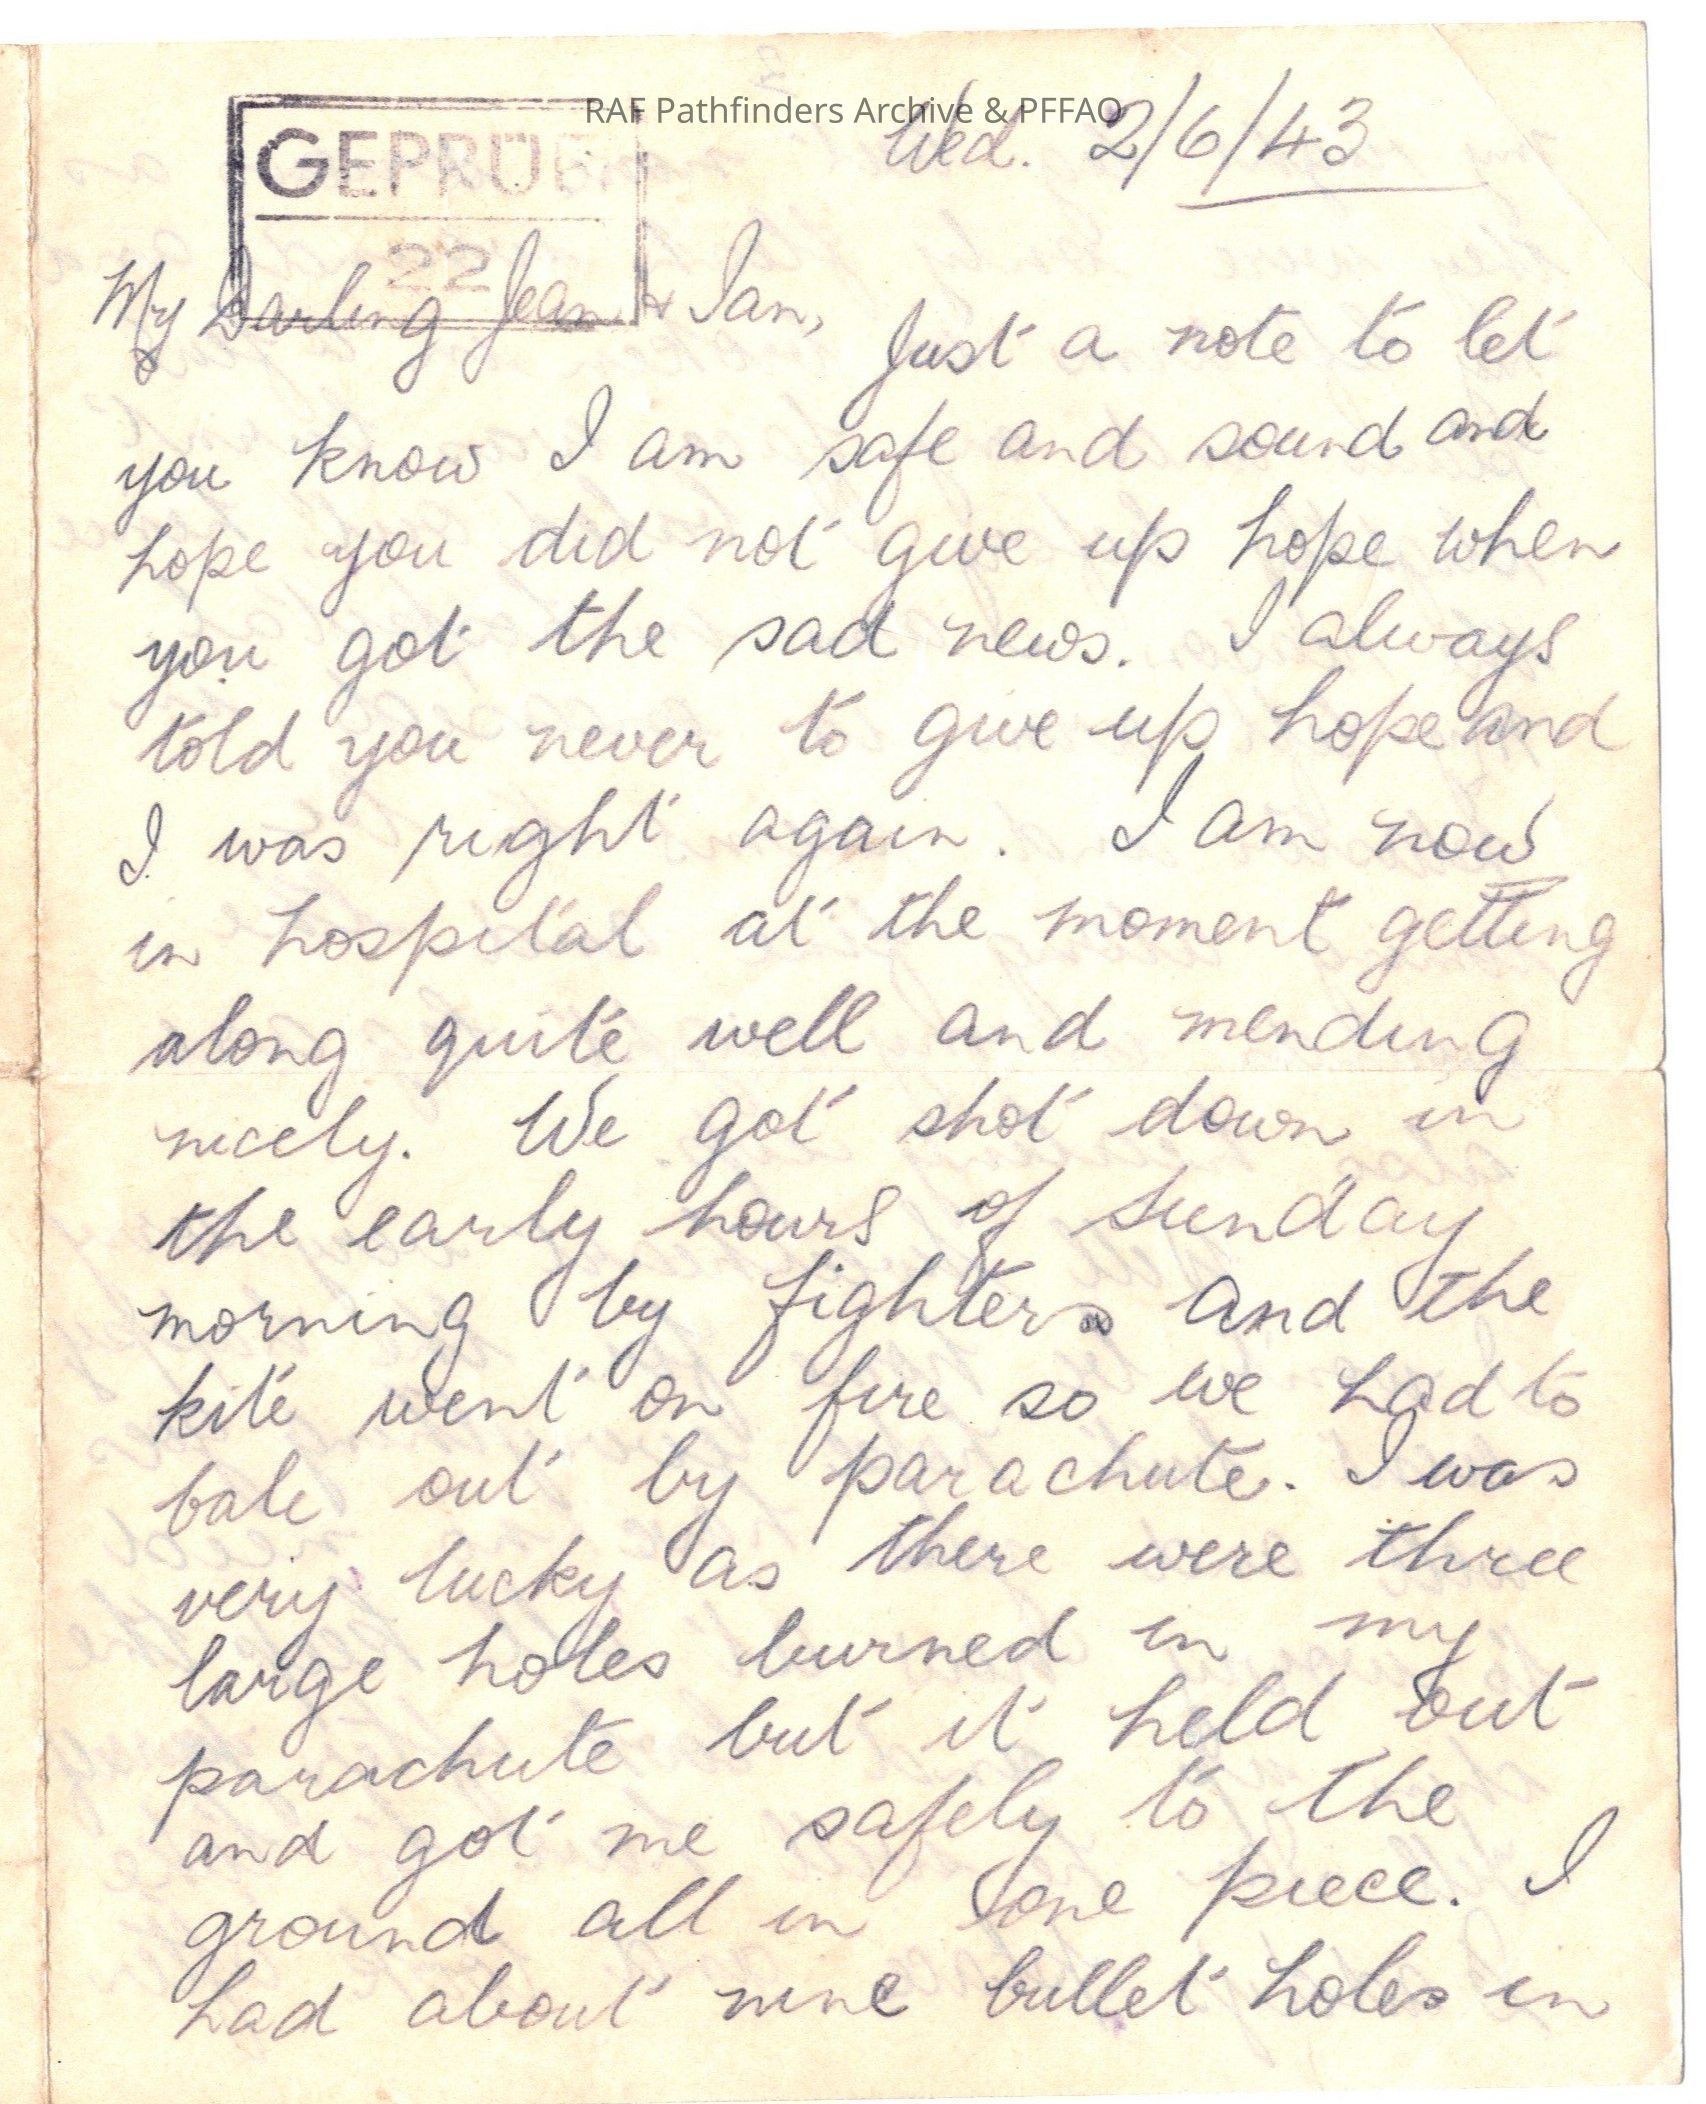 RAF Pathfinders Archive & PFFAO
GEPRÜF
22
Wed. 2/6/43
My Darling Jean & Ian,
Just a note to let
you know I am safe and sound and
hope you did not give up hope when
you got the sad news. I always
told you never to give up hope and
I was right again. I am now
in hospital at the moment getting
along quite well and mending
nicely. We got shot down in
the early hours of Sunday
morning by fighters and the
kite went on fire so we had to
bale out by parachute. I was
very lucky as there were three
large holes burned in my
parachute but it held out
and got me safely to the
ground all in one piece. I
had about nine bullet holes in